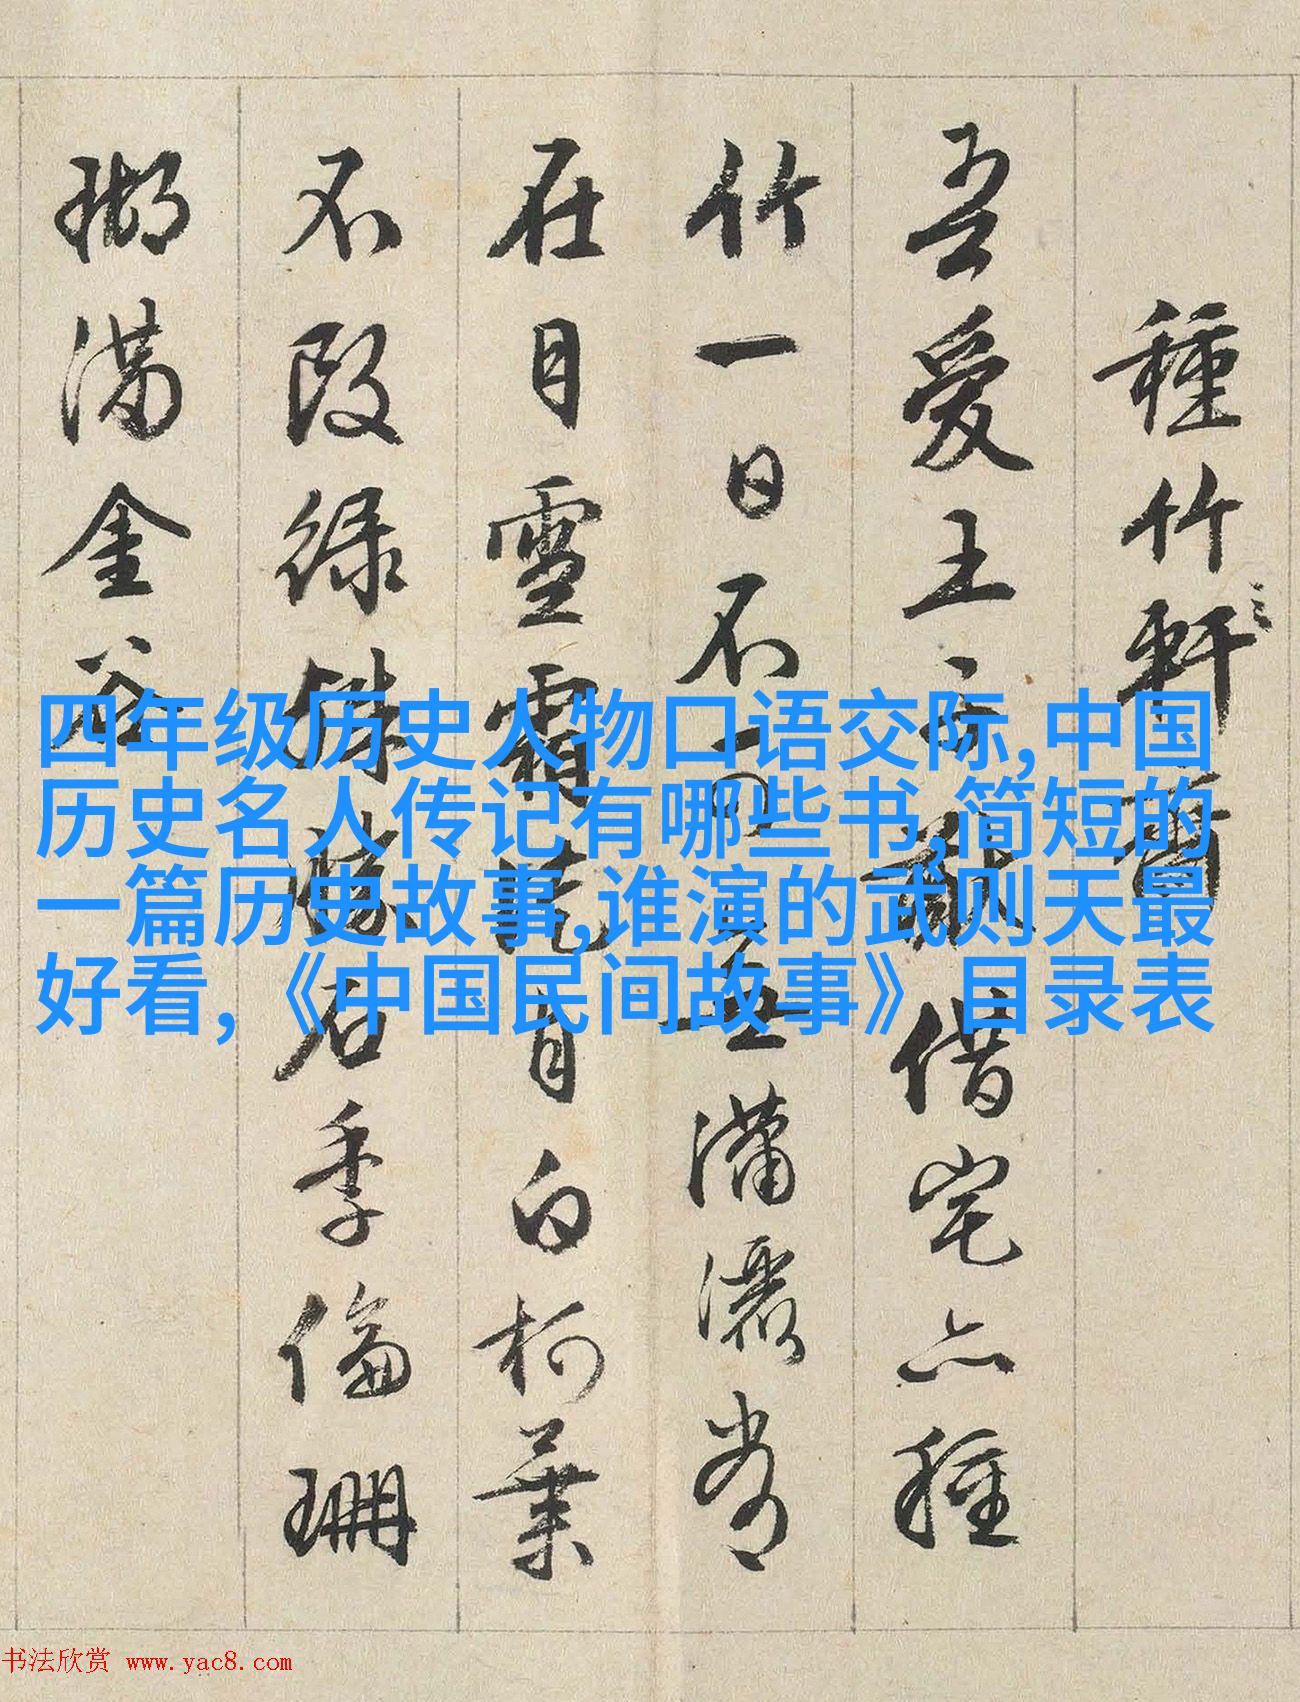 種竹軒
吾愛王子猷借宅亦種
竹一日不可無瀟灑常
在目雪霜自白柯葉
不改綠殊勝石季倫珊
瑚滿金谷
四年级历史人物口语交际,中国
历史名人传记有哪些书,简短的
一篇历史故事,谁演的武则天最
好看,《中国民间故事》目录表
书法欣赏 www.yac8.com